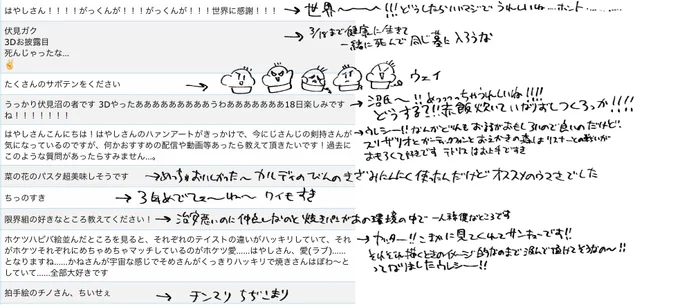 はやしさん！！！！がっくんが！！！がっくんが！！！世界に感謝！！！
→ 世界〜〜〜!!! どうしたらいいマジで うれしいね…ホント………
伏見ガク
3Dお披露目
死んじゃったな...
✌
→ 3/18まで健康に生きて
一緒に死んで同じ墓に入ろうな
たくさんのサボテンをください
→ ウェイ
うっかり伏見沼の者です 3Dやったああああああああああうわあああああああ18日楽しみですね！！！！！！！
→ 沼氏〜!! めっっっっちゃうれしいね!!!
どうする?!!赤飯炊いていなりずしつくろっか!!!!
はやしさんこんにちは！はやしさんのハァンアートがきっかけで、今にじさんじの剣持さんが
気になっているのですが、何かおすすめの配信や動画等あったら教えて頂きたいです！過去に
このような質問があったらすみません...。
→ ウレシー!! なんか
おもしろくて好きです
菜の花のパスタ超美味しそうです
→ めっちゃおいしかった〜 カルディのびんのきざみにんにく使ったんだけどオススメのウマさでした
ちっのすき
→ ワイもすき
限界組の好きなところ教えてください！
→ 治安悪いのに仲良しなのと焼きパンがあの環境の中で一人
ホケツハピバ絵並んだところを見ると、それぞれのテイストの違いがハッキリしていて、それ
がホケツそれぞれにめちゃめちゃマッチしているのがホケツ愛......はやしさん、愛(ラブ)......
となりますね......かねさんが宇宙な感じでそめさんがくっきりハッキリで焼きさんはぽわ〜と
していて......全部大好きです
→ こまかに見てくれてサンキューです!!
ってなりましたウレシー!!
拍手絵のチノさん、ちいせぇ
→ チンマリ ちぢこまり